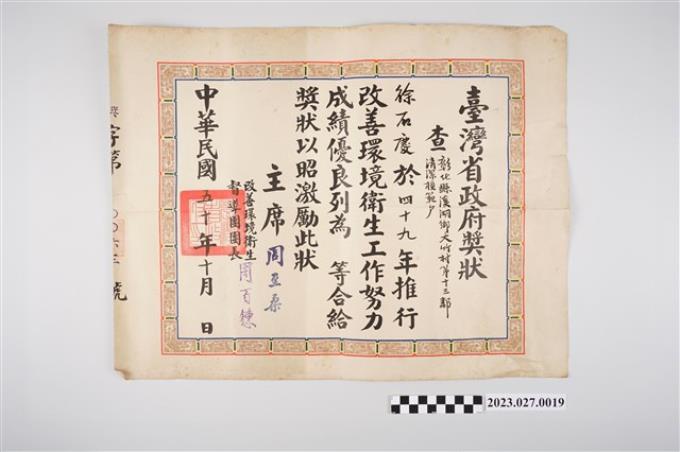 臺灣省政府獎狀
查
彰化縣溪湖鄉大竹村第十三鄰
清潔模範戶
徐石慶於四十九年推行
改善環境衛生工作努力
成績優良列為 等合給
獎狀以昭激勵此狀
主席 周至柔
改善環境衛生
督導團團長 周百鍊
中華民國五十年十月 日
字第 號
2023.027.0019